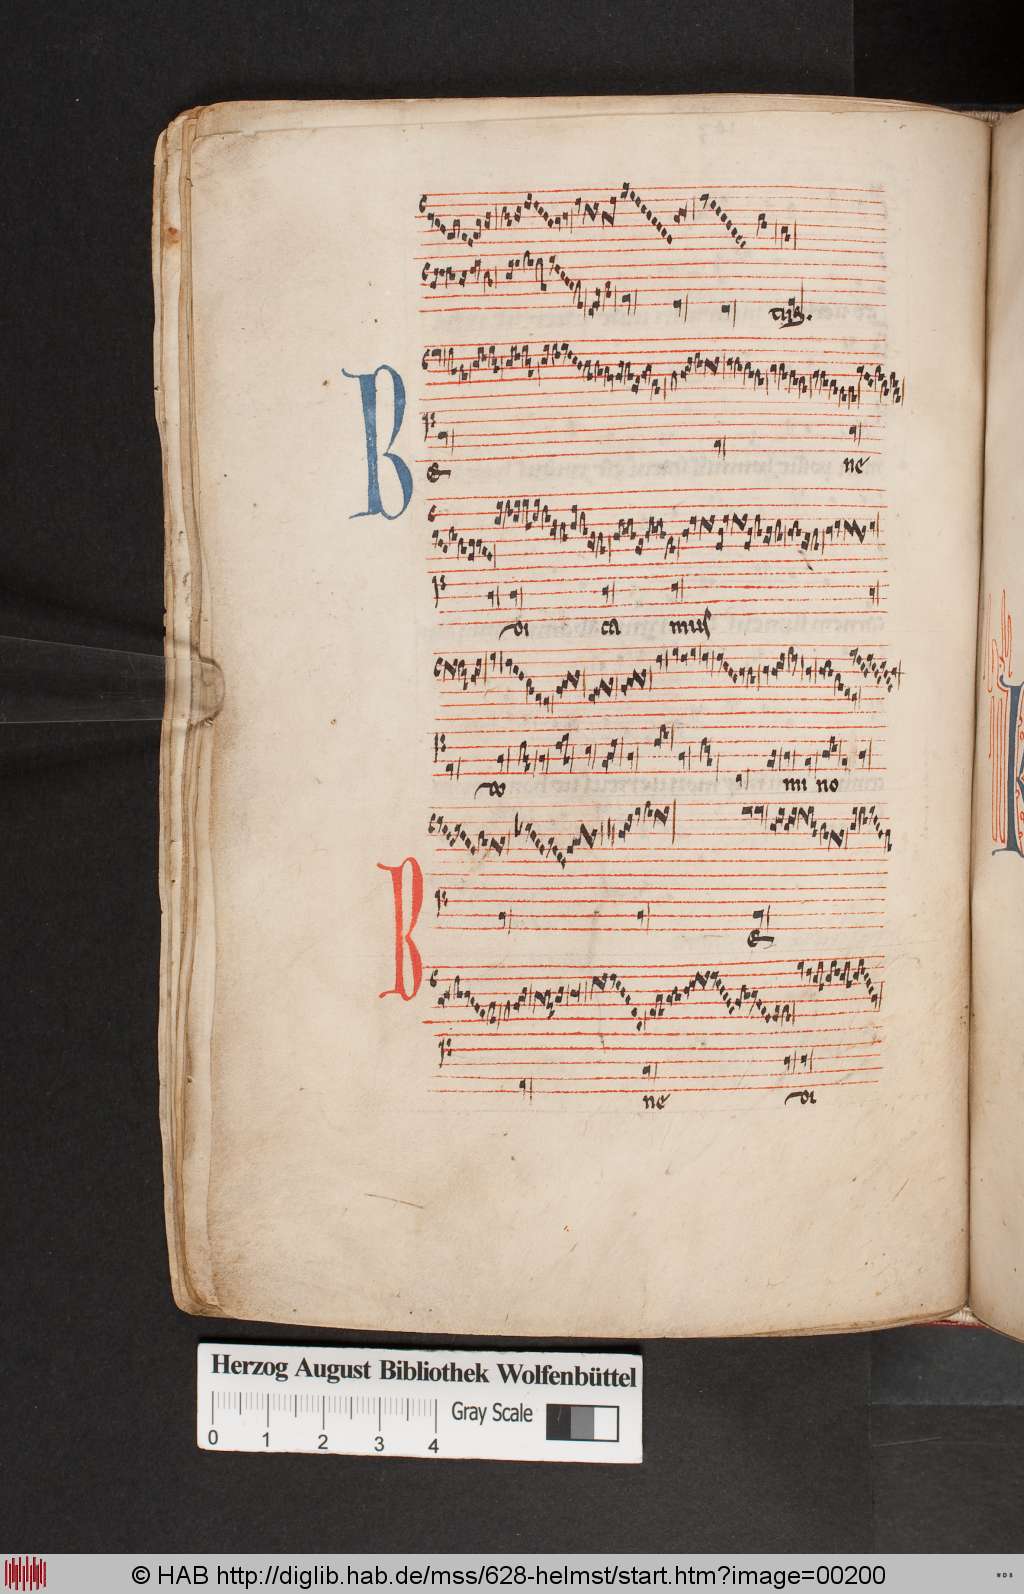 tus.
B
E ne
di ca mus
do mi no
B
E
ne di
Herzog August Bibliothek Wolfenbüttel
0 1 2 3 4 Gray Scale
© HAB http://diglib.hab.de/mss/628-helmst/start.htm?image=00200